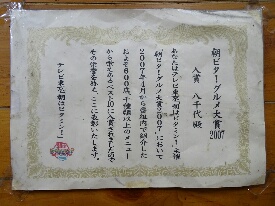 朝ビタ！グルメ大賞
2007
入賞 八千代殿
あなたはテレビ東京「朝はビタミン！」主催
「朝ビタ！グルメ大賞2007」において
2007年4月から番組内で紹介した
およそ600店、千種類以上のメニュー
から栄えあるベスト10に入賞されましたので
その栄誉を称え、ここに表彰いたします。
テレビ東京「朝はビタミン！」